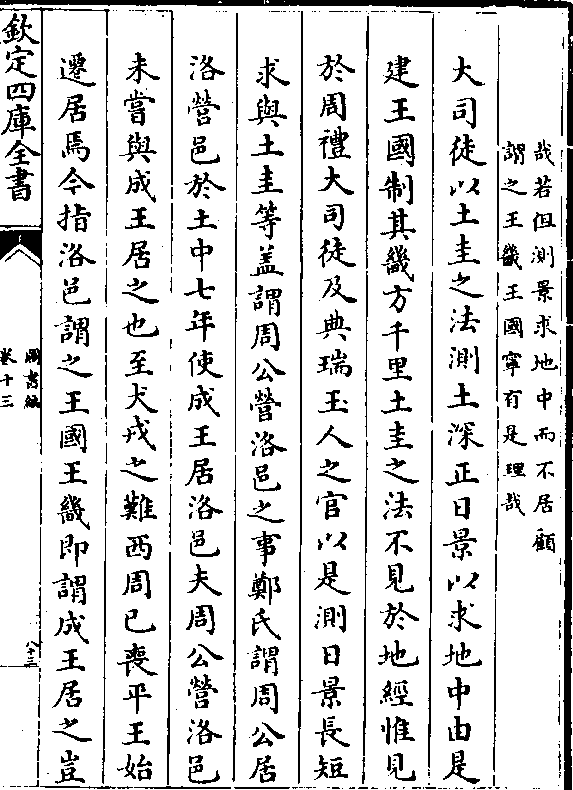 哉若但測景求地中而不居顧
謂之王畿王國寧有是理哉
大司徒以土圭之法測土深正日景以求地中由是
建王國制其畿方千里土圭之法不見於地經惟見
於周禮大司徒及典瑞玉人之官以是測日景長短
求與土圭等盖謂周公營洛邑之事鄭氏謂周公居
洛營邑於土中七年使成王居洛邑夫周公營洛邑
未嘗與成王居之也至犬戎之難西周已喪平王始
遷居焉今指洛邑謂之王國王畿即謂成王居之豈
欽定四庫全書
圖書編
卷十三
八十三